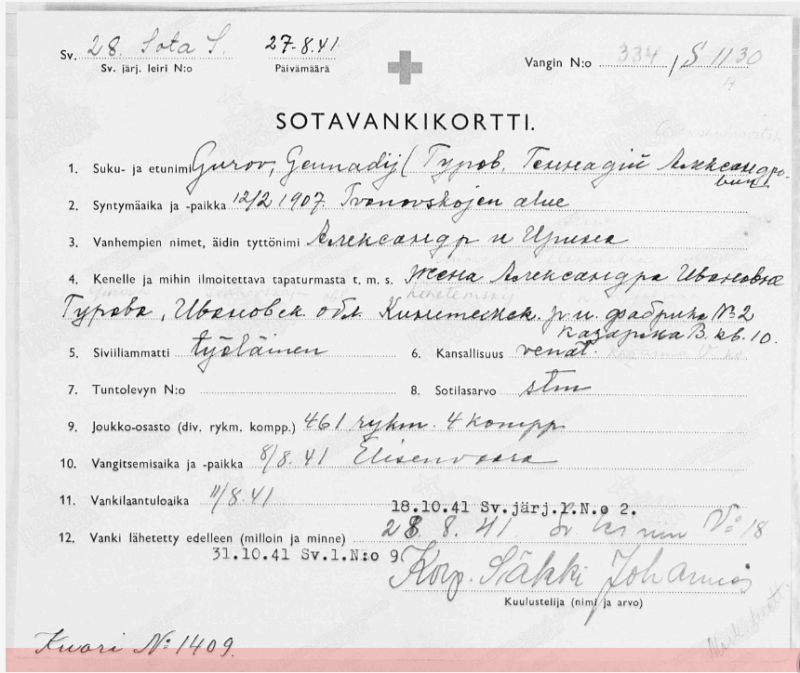 Sv. 28. Sota S. 27.8.41 Vangin N:o 334 / S 1130
Sv. järj. leiri N:o Päivämäärä
SOTAVANKIKORTTI.
1. Suku- ja etunimi Gurov, Gennadij (Гуров, Геннадий Александро-
вич).
2. Syntymäaika ja -paikka 12/2 1907. Ivanovskojen alue
3. Vanhempien nimet, äidin tyttönimi Александр и Ирина
4. Kenelle ja mihin ilmoitettava tapaturmasta t. m. s. Жена Александра Ивановна
Гурова, Ивановск. обл. Кинешемск. р-н. фабрика №2
казарма В. кв. 10.
5. Siviiliammatti työläinen 6. Kansallisuus venäl.
7. Tuntolevyn N:o 8. Sotilasarvo stm
9. Joukko-osasto (div. rykm. kompp.) 461 rykm. 4 kompp.
10. Vangitsemisaika ja -paikka 8/8.41 Elisenvaara
11. Vankilaantuloaika 11/8.41
18.10.41 Sv.järj.l.N:o 2.
12. Vanki lähetetty edelleen (milloin ja minne) 28.8.41 N:o 18
31.10.41 Sv.l.N:o 9
Korp. Säkki Johannes
Kuulustelija (nimi ja arvo)
Kuori №1409.